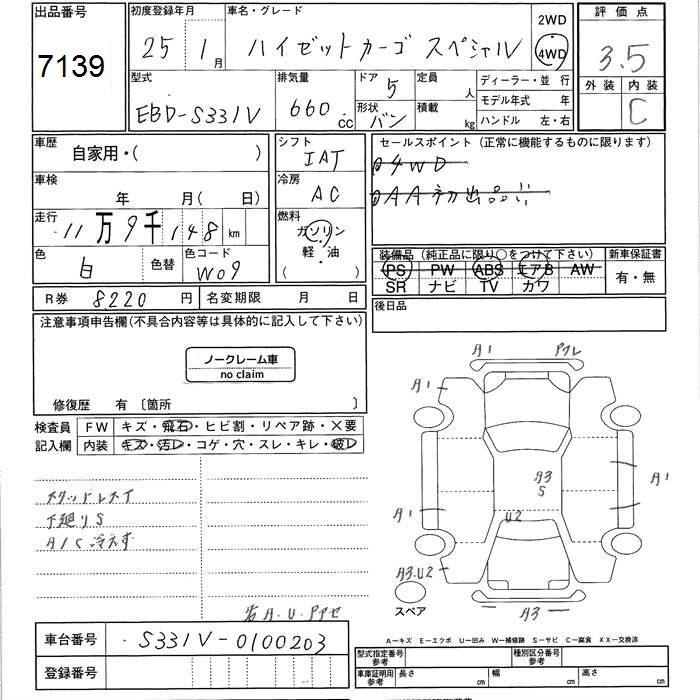 出品番号 7139
初度登録年月 25 1月
車名・グレード ハイゼットカーゴ スペシャル
2WD
4WD
評価点 3.5
外装 内装 C
型式 EBD-S331V
排気量 660 cc
ドア 5
形状 バン
定員 人
積載 kg
ディーラー・並行
モデル年式 年
ハンドル 左・右
車歴 自家用・( )
車検 年 月( 日)
走行 11万9千148km
色 白 色替 色コード W09
シフト IAT
冷房 AC
燃料 ガソリン・軽・油 ( )
セールスポイント(正常に機能するものに限ります)
4WD
AA初出品
装備品(純正品に限り○をつけて下さい)
PS PW ABS エアB AW
SR ナビ TV カワ
新車保証書
有・無
後日品
R券 8220円 名変期限 月 日
注意事項申告欄(不具合内容等は具体的に記入して下さい)
ノークレーム車
no claim
修復歴 有 〔箇所 〕
検査員記入欄
FW キズ・飛石・ヒビ割・リペア跡・×要
内装 キズ・汚レ・コゲ・穴・スレ・キレ・破レ
下廻りS
A/C冷えず
A1
A1
A1
A1
A3
S
U2
A3.U2
A3
スペア
A-キズ E-エクボ U-凹み W-補修跡 S-サビ C-腐食 XX-交換済
車台番号 S331V-0100203
登録番号
型式指定番号参考 種別区分番号参考
車庫証明用参考 長さ cm 幅 cm 高さ cm